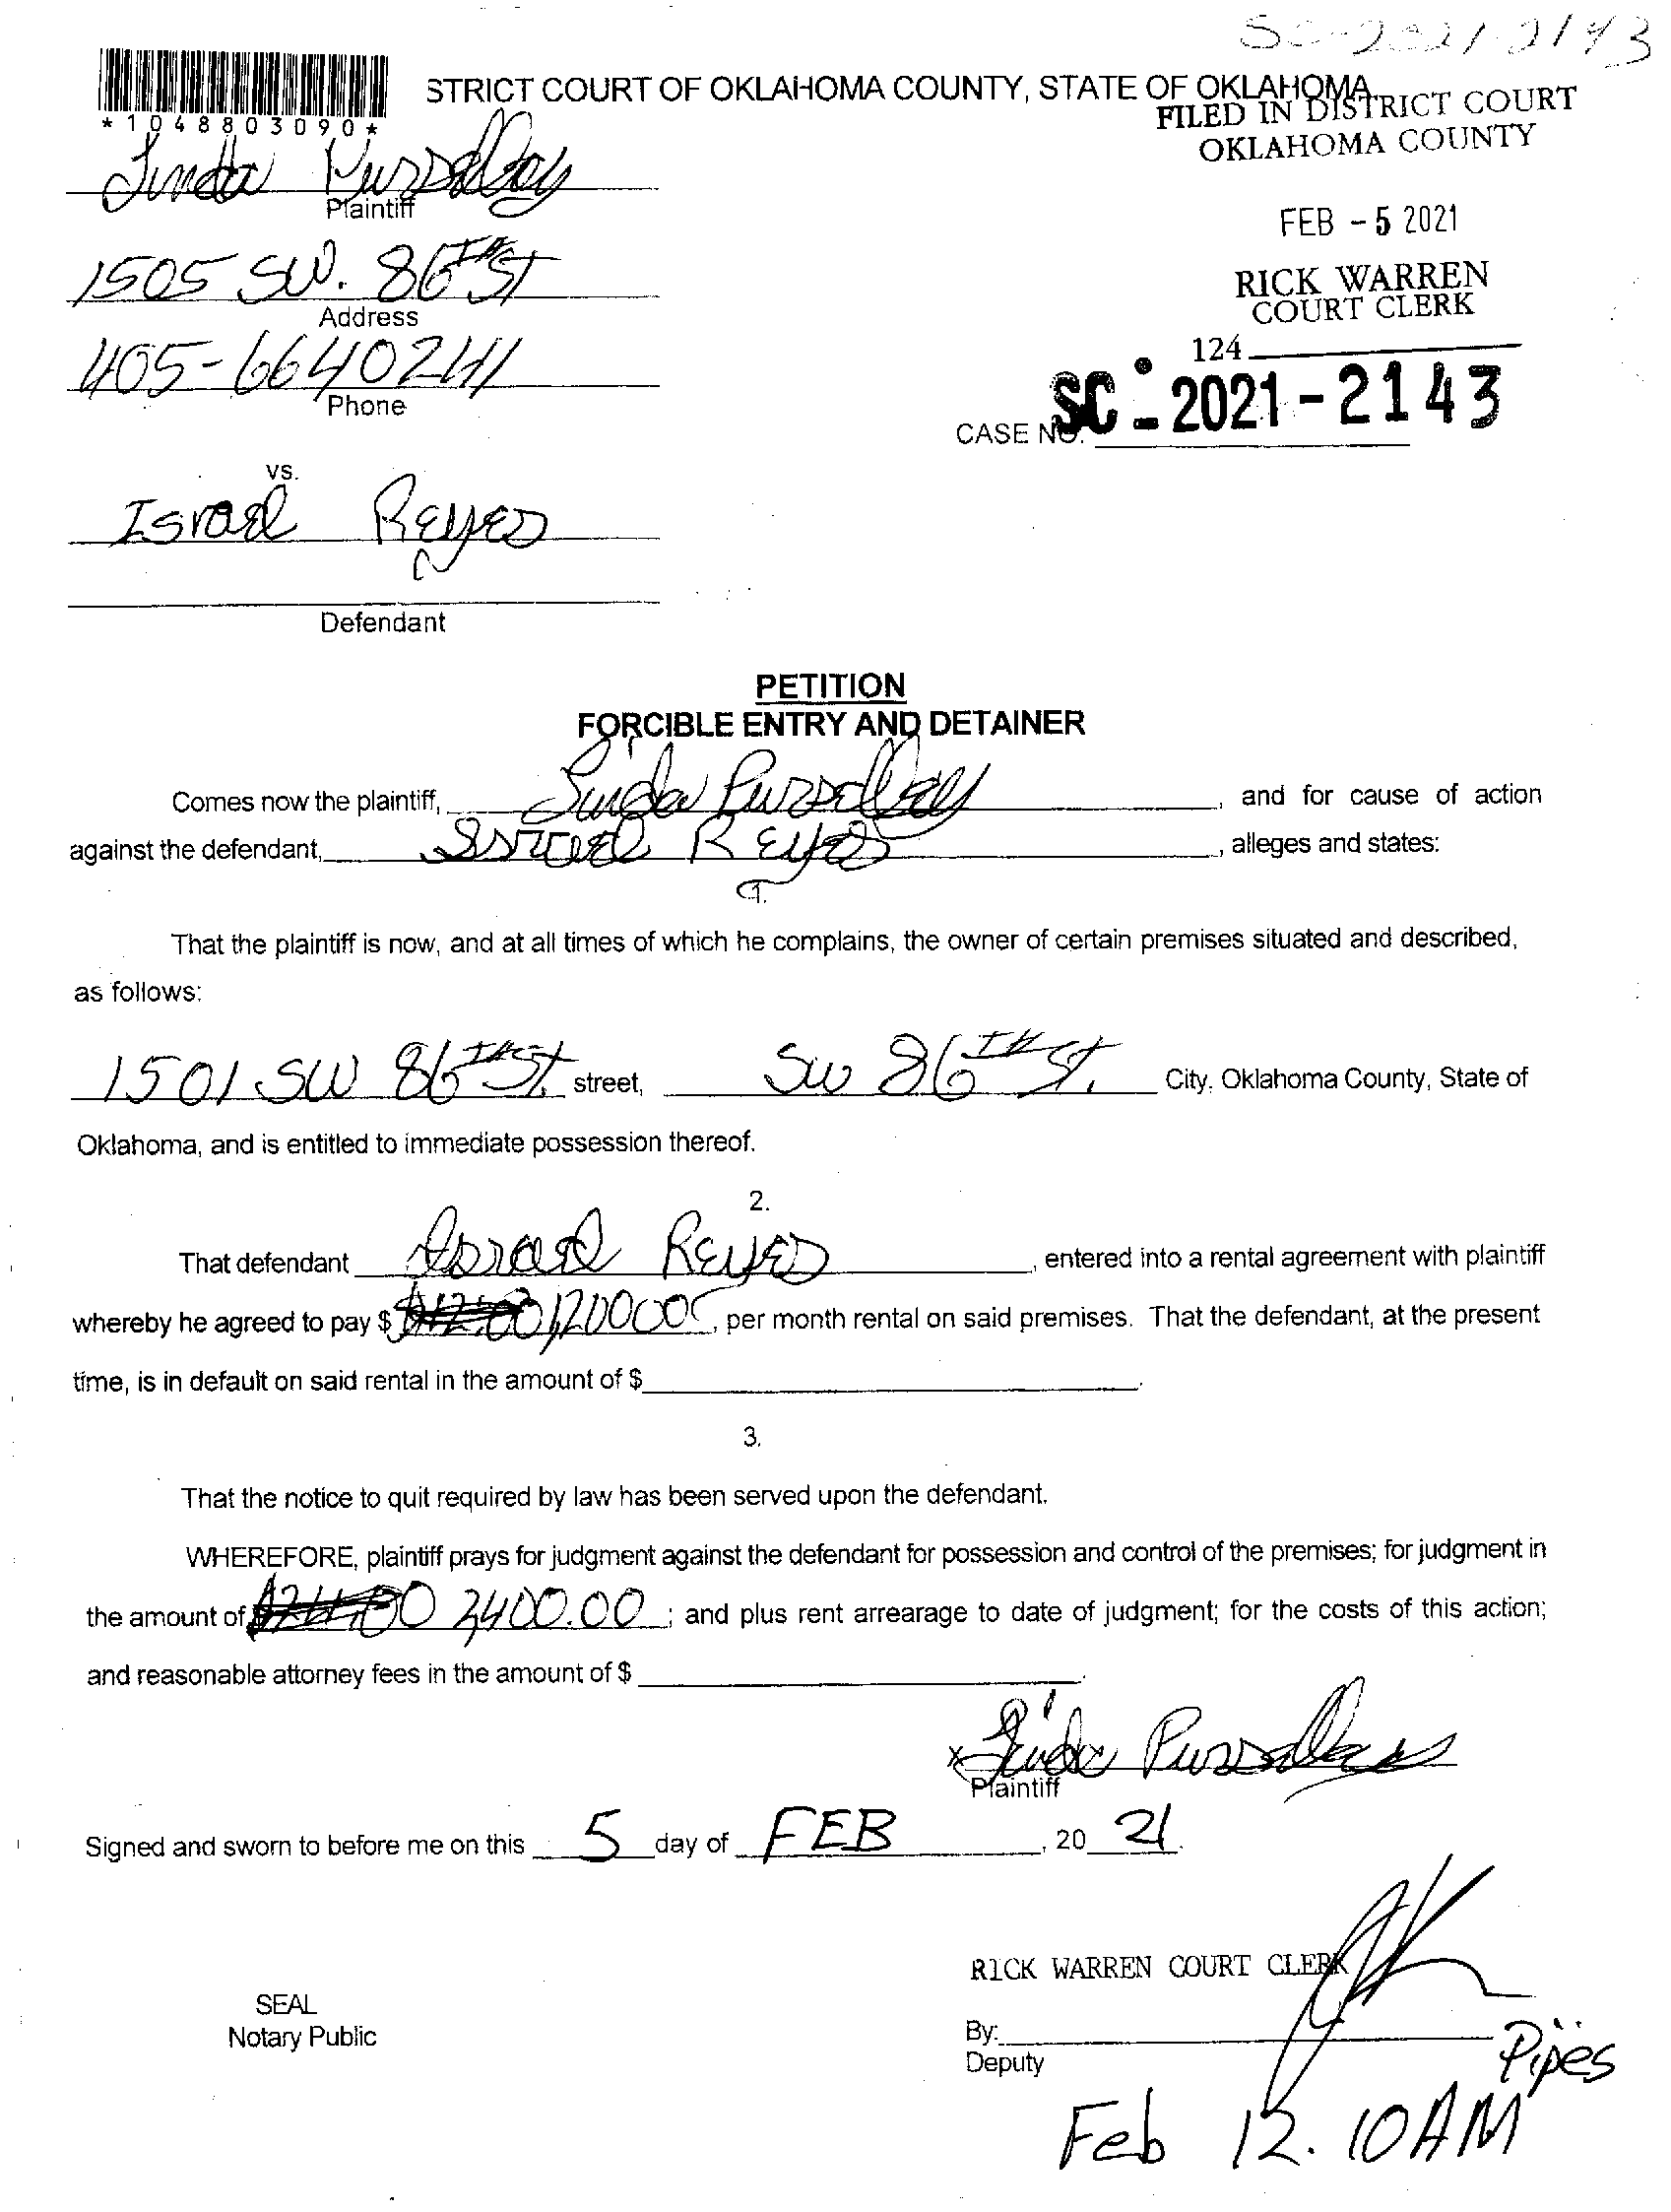 SC-2021-2143
STRICT COURT OF OKLAHOMA COUNTY, STATE OF OKLAHOMA
FILED IN DISTRICT COURT
OKLAHOMA COUNTY
*1048803090*
Linda
Plaintiff
FEB - 5 2021
1505 SW. 86TH ST
Address
RICK WARREN
COURT CLERK
405-6640241
Phone
124
CASE NO. SC - 2021-2143
vs.
Israel Reyes
Defendant
PETITION
FORCIBLE ENTRY AND DETAINER
Comes now the plaintiff, Linda , and for cause of action
against the defendant, Israel Reyes , alleges and states:
1.
That the plaintiff is now, and at all times of which he complains, the owner of certain premises situated and described,
as follows:
1501 SW 86TH St. street, SW 86TH St. City, Oklahoma County, State of
Oklahoma, and is entitled to immediate possession thereof.
2.
That defendant Israel Reyes , entered into a rental agreement with plaintiff
whereby he agreed to pay $ , per month rental on said premises. That the defendant, at the present
time, is in default on said rental in the amount of $ .
3.
That the notice to quit required by law has been served upon the defendant.
WHEREFORE, plaintiff prays for judgment against the defendant for possession and control of the premises; for judgment in
the amount of 2400.00 ; and plus rent arrearage to date of judgment; for the costs of this action;
and reasonable attorney fees in the amount of $ .
x Linda
Plaintiff
Signed and sworn to before me on this 5 day of FEB , 20 21.
RICK WARREN COURT CLERK
SEAL
Notary Public
By:
Deputy
Pipes
Feb 12. 10AM